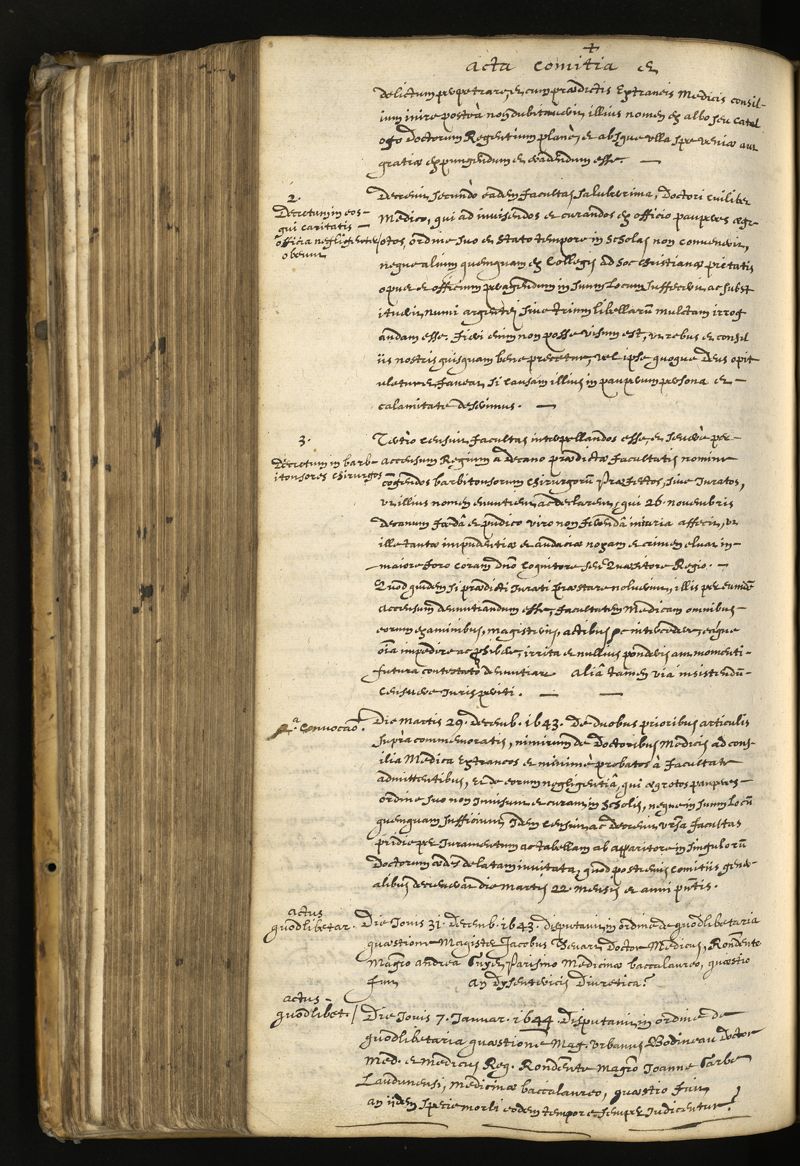 acta comitia et
delictum perpetrare, et cum prædictis Extraneis Medicis consil-
ium inire posterà non dubitaverit, illius nomen ex albo seu catal
ogo Doctorum Regentium planè, et absque ulla spe veniæ aut
gratiæ expungendum et eradendum esse. —
2.
Decretum in eos-
qui caritatis -
officia negligenter
obeunt
Decrevit secundò eadem facultas saluberrima, Doctori cuilibet
Medico, qui ad invisendos et curandos ex officio pauperes ægr-
otos, ordine suo et stato tempore in scholas non convenerit,
neque alium quempiam ex Collegis ad hoc christianæ pietatis
opus et officium peragendum in suum locum suffecerit, ac subst
ituerit, numi argentei sive trium libellarū mulctam irrog
andam esse. fieri enim non posse visum est, ut rebus et consil
iis nostris quisquam bene precetur, vel ipse quoque Deus opit
uletur et faveat, si causam illius in pauperum persona et -
calamitate deserimus. —
3.
Decretum in barb-
itonsores chirurgos
Tertiò censuit facultas interpellandos esse, et severè per -
accensum Regium a Decano prædictæ facultatis nomine
cogendos barbitonsorum chirurgorū Præfectos, sive Juratos,
ut illius nomen enuntient, ac declarent, qui 26. novembris
Decanum fœdâ et pudico viro non ferendâ iniuria affecit, ut
ille tantæ impudentiæ et audaciæ noxam et crimen eluat in-
maiore foro coram dno cognitore seu Quæstore Regio. —
Quòd quidem si prædicti Jurati præstare noluerint, illis per eumdē
accensum denuntiandum esse, facultatem Medicam omnibus -
eorum examinibus, magisteriis, actibus intercedere, eaque
oīa impedire ac prohibere, irrita et nullius ponderis aut momenti -
futura contestatò denuntiare aliâ tamen viâ insistendū -
censuere Juris periti. — —
2.ª convocaõ.
Die martis 29. decemb. 1643. de duobus prioribus articulis
suprà commemoratis, nimirum de Doctoribus Medicis ad cons-
ilia Medica Extraneos et minimè probatos à facultate
admittentibus, et de eorum negligentiâ, qui ægrotos pauperes -
ordine suo non invisunt et curant in scholis, neque in suum locū
quempiam sufficiunt, idem censuit, ac decrevit, facultas
pridie per Juramentum ac tabellam ab apparitore in singulorū
Doctorum ædes delatam invitata, quod postremis comitiis gener-
alibus decreverat die martis 22. mensis et anni pñtis.
actus
quodlibetar.
Die Jovis 31. decemb. 1643. disputavit in ordine de quodlibetaria
quæstione Magister Jacobus Doctor Medicus, Rondente
Magro andrea Parisino Medicinæ baccalaureo, quæstio
fuit An Dysentericis Diuretica?
actus -
quodlibet.
Die Jovis 7. Januar. 1644. Disputavit in ordine de
quodlibetaria quæstione Mag. Urbanus Bodineau Doctor
Med. et Medicus Reg. Rondente magro Joanne
Laudunensi, medicinæ baccalaureo, quæstio fuit
an iidem specie morbi eodem tempore semper Judicentur?